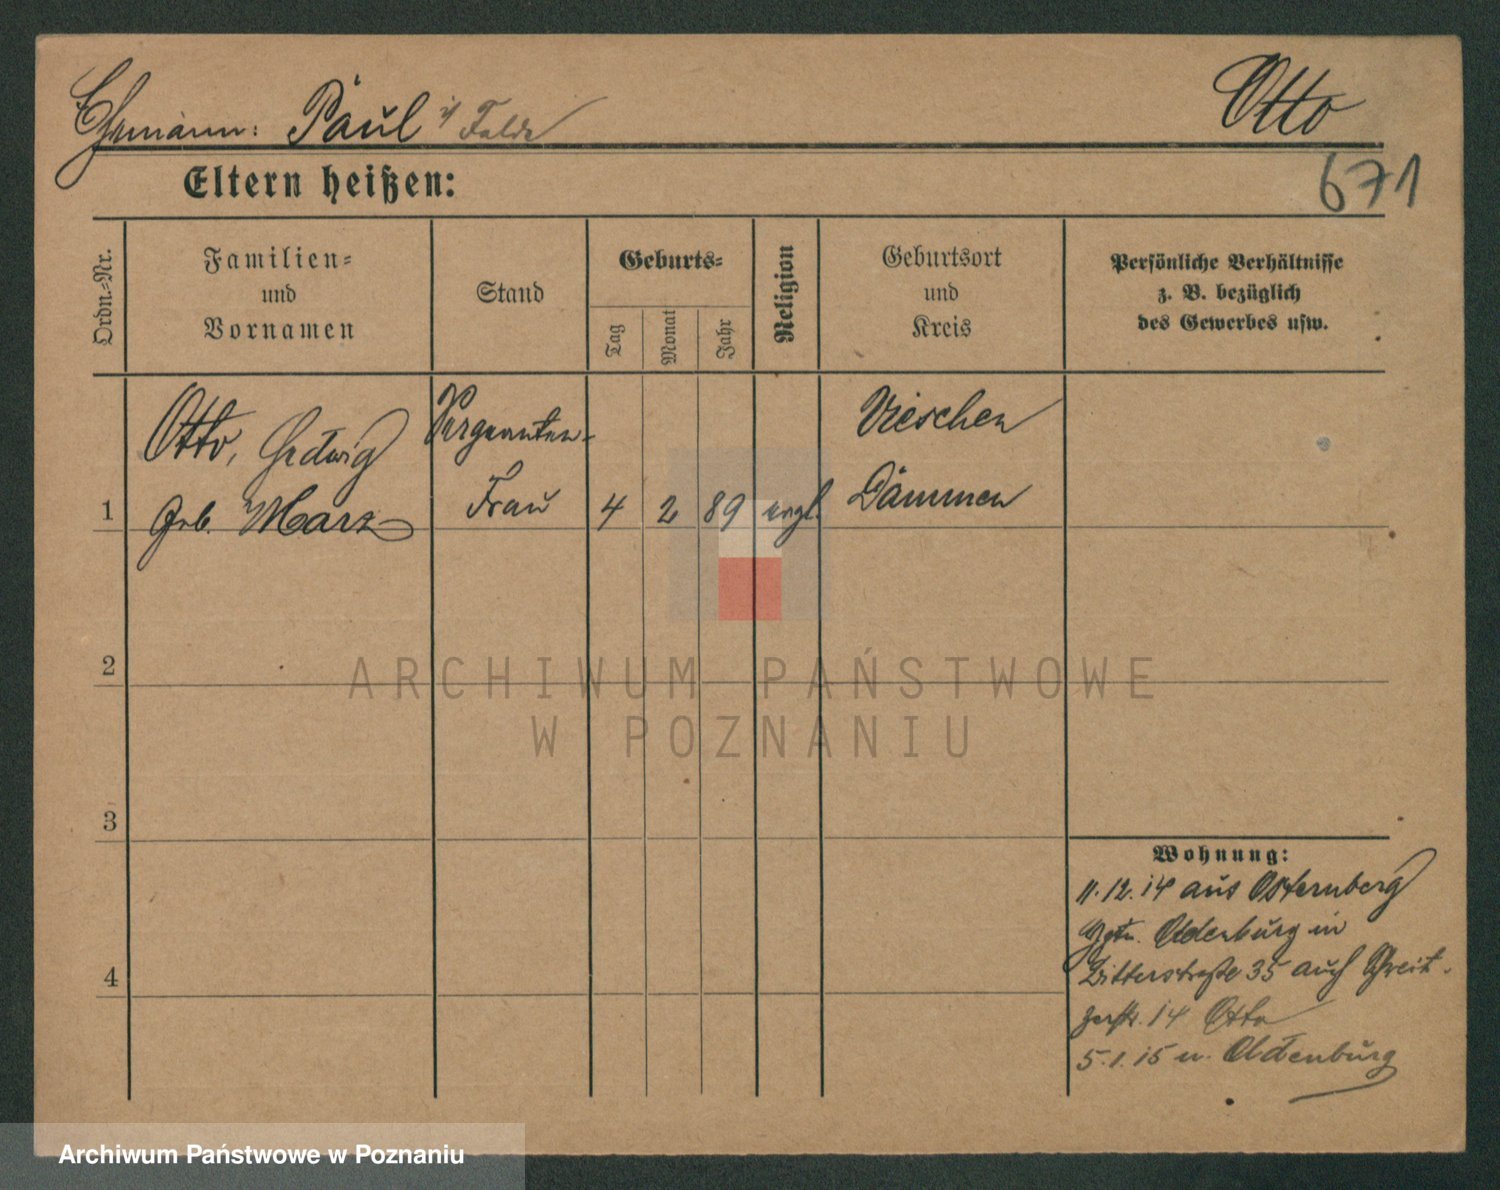 Ehemann: Paul i/ Felde
Otto
671
Eltern heißen:
Ordn.-Nr.
Familien-
und
Vornamen
Stand
Geburts-
Tag
Monat
Jahr
Religion
Geburtsort
und
Kreis
Persönliche Verhältnisse
z. B. bezüglich
des Gewerbes usw.
1
Otto, Hedwig
geb. Marz
Sergeanten-
Frau
4
2
89
evgl.
Vieschen
2
3
4
Wohnung:
11.12.14 aus Osternberg
Oldenburg in
Ritterstraße 35 auch
14 Otto
5.1.15 n. Oldenburg
ARCHIWUM PAŃSTWOWE
W POZNANIU
Archiwum Państwowe w Poznaniu